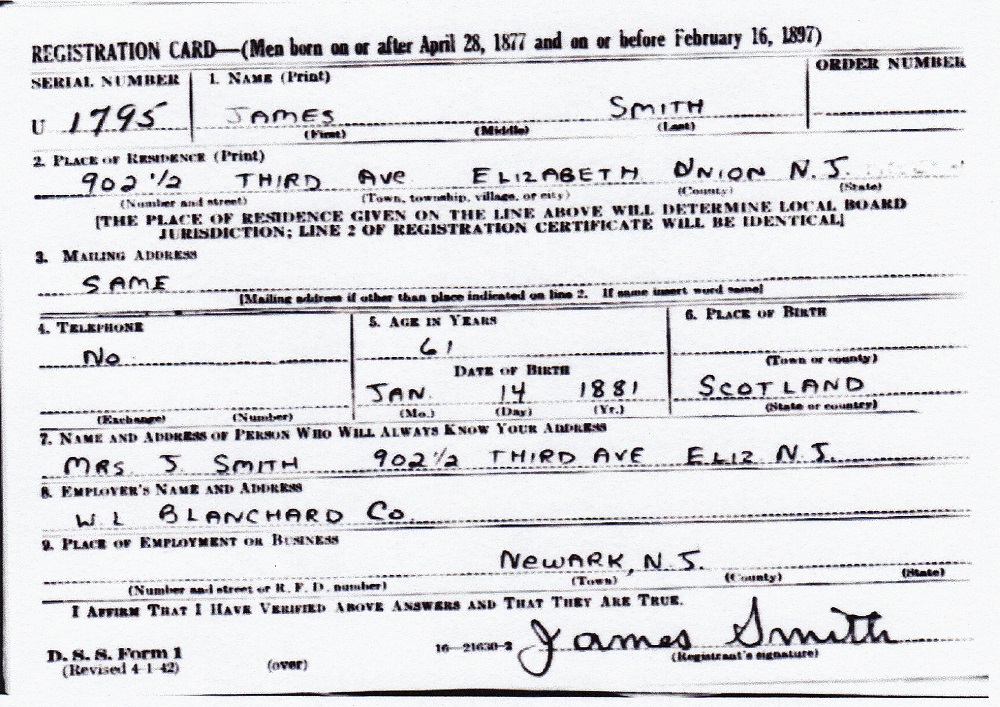 REGISTRATION CARD—(Men born on or after April 28, 1877 and on or before February 16, 1897)
SERIAL NUMBER 1. NAME (Print) ORDER NUMBER
U 1795 JAMES SMITH
(First) (Middle) (Last)
2. PLACE OF RESIDENCE (Print)
902 1/2 THIRD AVE ELIZABETH UNION N.J.
(Number and street) (Town, township, village, or city) (County) (State)
[THE PLACE OF RESIDENCE GIVEN ON THE LINE ABOVE WILL DETERMINE LOCAL BOARD
JURISDICTION; LINE 2 OF REGISTRATION CERTIFICATE WILL BE IDENTICAL]
3. MAILING ADDRESS
SAME
[Mailing address if other than place indicated on line 2. If same insert word same]
4. TELEPHONE 5. AGE IN YEARS 6. PLACE OF BIRTH
No 61
(Town or county)
DATE OF BIRTH
JAN. 14 1881 SCOTLAND
(Exchange) (Number) (Mo.) (Day) (Yr.) (State or country)
7. NAME AND ADDRESS OF PERSON WHO WILL ALWAYS KNOW YOUR ADDRESS
MRS. J. SMITH 902 1/2 THIRD AVE ELIZ. N.J.
8. EMPLOYER'S NAME AND ADDRESS
W. L BLANCHARD Co.
9. PLACE OF EMPLOYMENT OR BUSINESS
NEWARK, N.J.
(Number and street or R. F. D. number) (Town) (County) (State)
I AFFIRM THAT I HAVE VERIFIED ABOVE ANSWERS AND THAT THEY ARE TRUE.
James Smith
D. S. S. Form 1 16—21630-2 (Registrant's signature)
(Revised 4-1-42) (over)